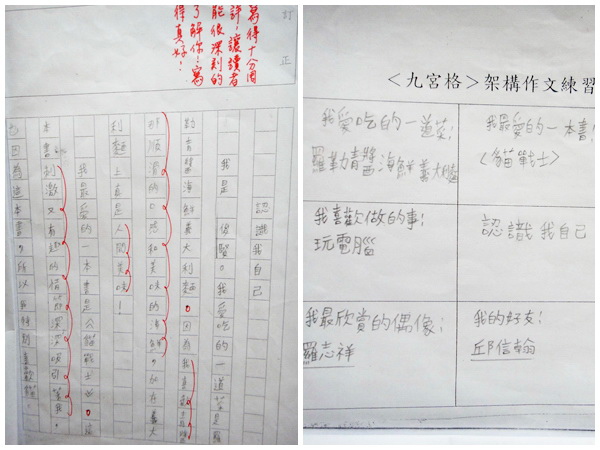 訂正
寫得十分周
詳!讓讀者
能很深刻的
了解你!寫
得真好!
認識我自己
我是　　。我愛吃的一道菜是羅
勒青醬海鮮義大利麵。因為我喜歡青醬
那順滑的口感和美味的海鮮,　在義大
利麵上真是人間美味!
我最愛的一本書是《貓戰士》。這
本書刺激又有趣的情節深深吸引著我,
也因為這本書,所以我特別喜歡貓。
<九宮格>架構作文練習
我愛吃的一道菜:
羅勒青醬海鮮義大利麵
我最愛的一本書:
《貓戰士》
我喜歡做的事:
玩電腦
認識我自己
我最欣賞的偶像:
羅志祥
我的好友:
邱信翰